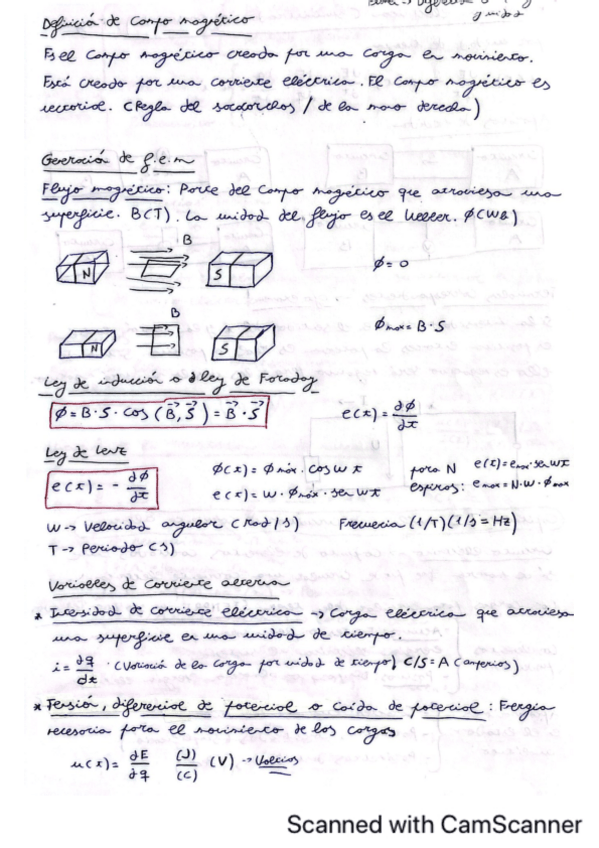 unidad
Definición de Campo magnético
Es el Campo magético creado por una Carga en movimiento.
Está creado por una corriente eléctrica. El Campo magético es
vectorial. (Regla del sacacorchos / de la mano derecha)
Generación de f.e.m
Flujo magnético: Parte del Campo magético que atraviesa una
superficie. B(T). La unidad del flujo es el Weber. Φ(Wb)
B
N
S
Φ = 0
B
N
S
Φmax = B·S
Ley de inducción o ley de Faraday
Φ = B·S·cos(B⃗,S⃗) = B⃗·S⃗
e(t) = ∂Φ/∂t
Ley de Lenz
e(t) = - ∂Φ/∂t
Φ(t) = Φmáx · cos wt
e(t) = w·Φmáx · sen wt
para N espiras:
e(t) = emax·sen wt
emax = N·w·Φmax
W → Velocidad angular (rad/s)
Frecuencia (1/T)(1/s = Hz)
T → Periodo (s)
Variables de Corriente alterna
* Intensidad de corriente eléctrica → Carga eléctrica que atraviesa
una superficie en una unidad de tiempo.
i = ∂q/dt · (Variación de la Carga por unidad de tiempo) C/S = A (amperios)
* Tensión, diferencial de potencial o Caída de potencial: Energía
necesaria para el movimiento de las cargas
u(t) = ∂E/∂q (J)/(C) (V) → Voltios
Scanned with CamScanner